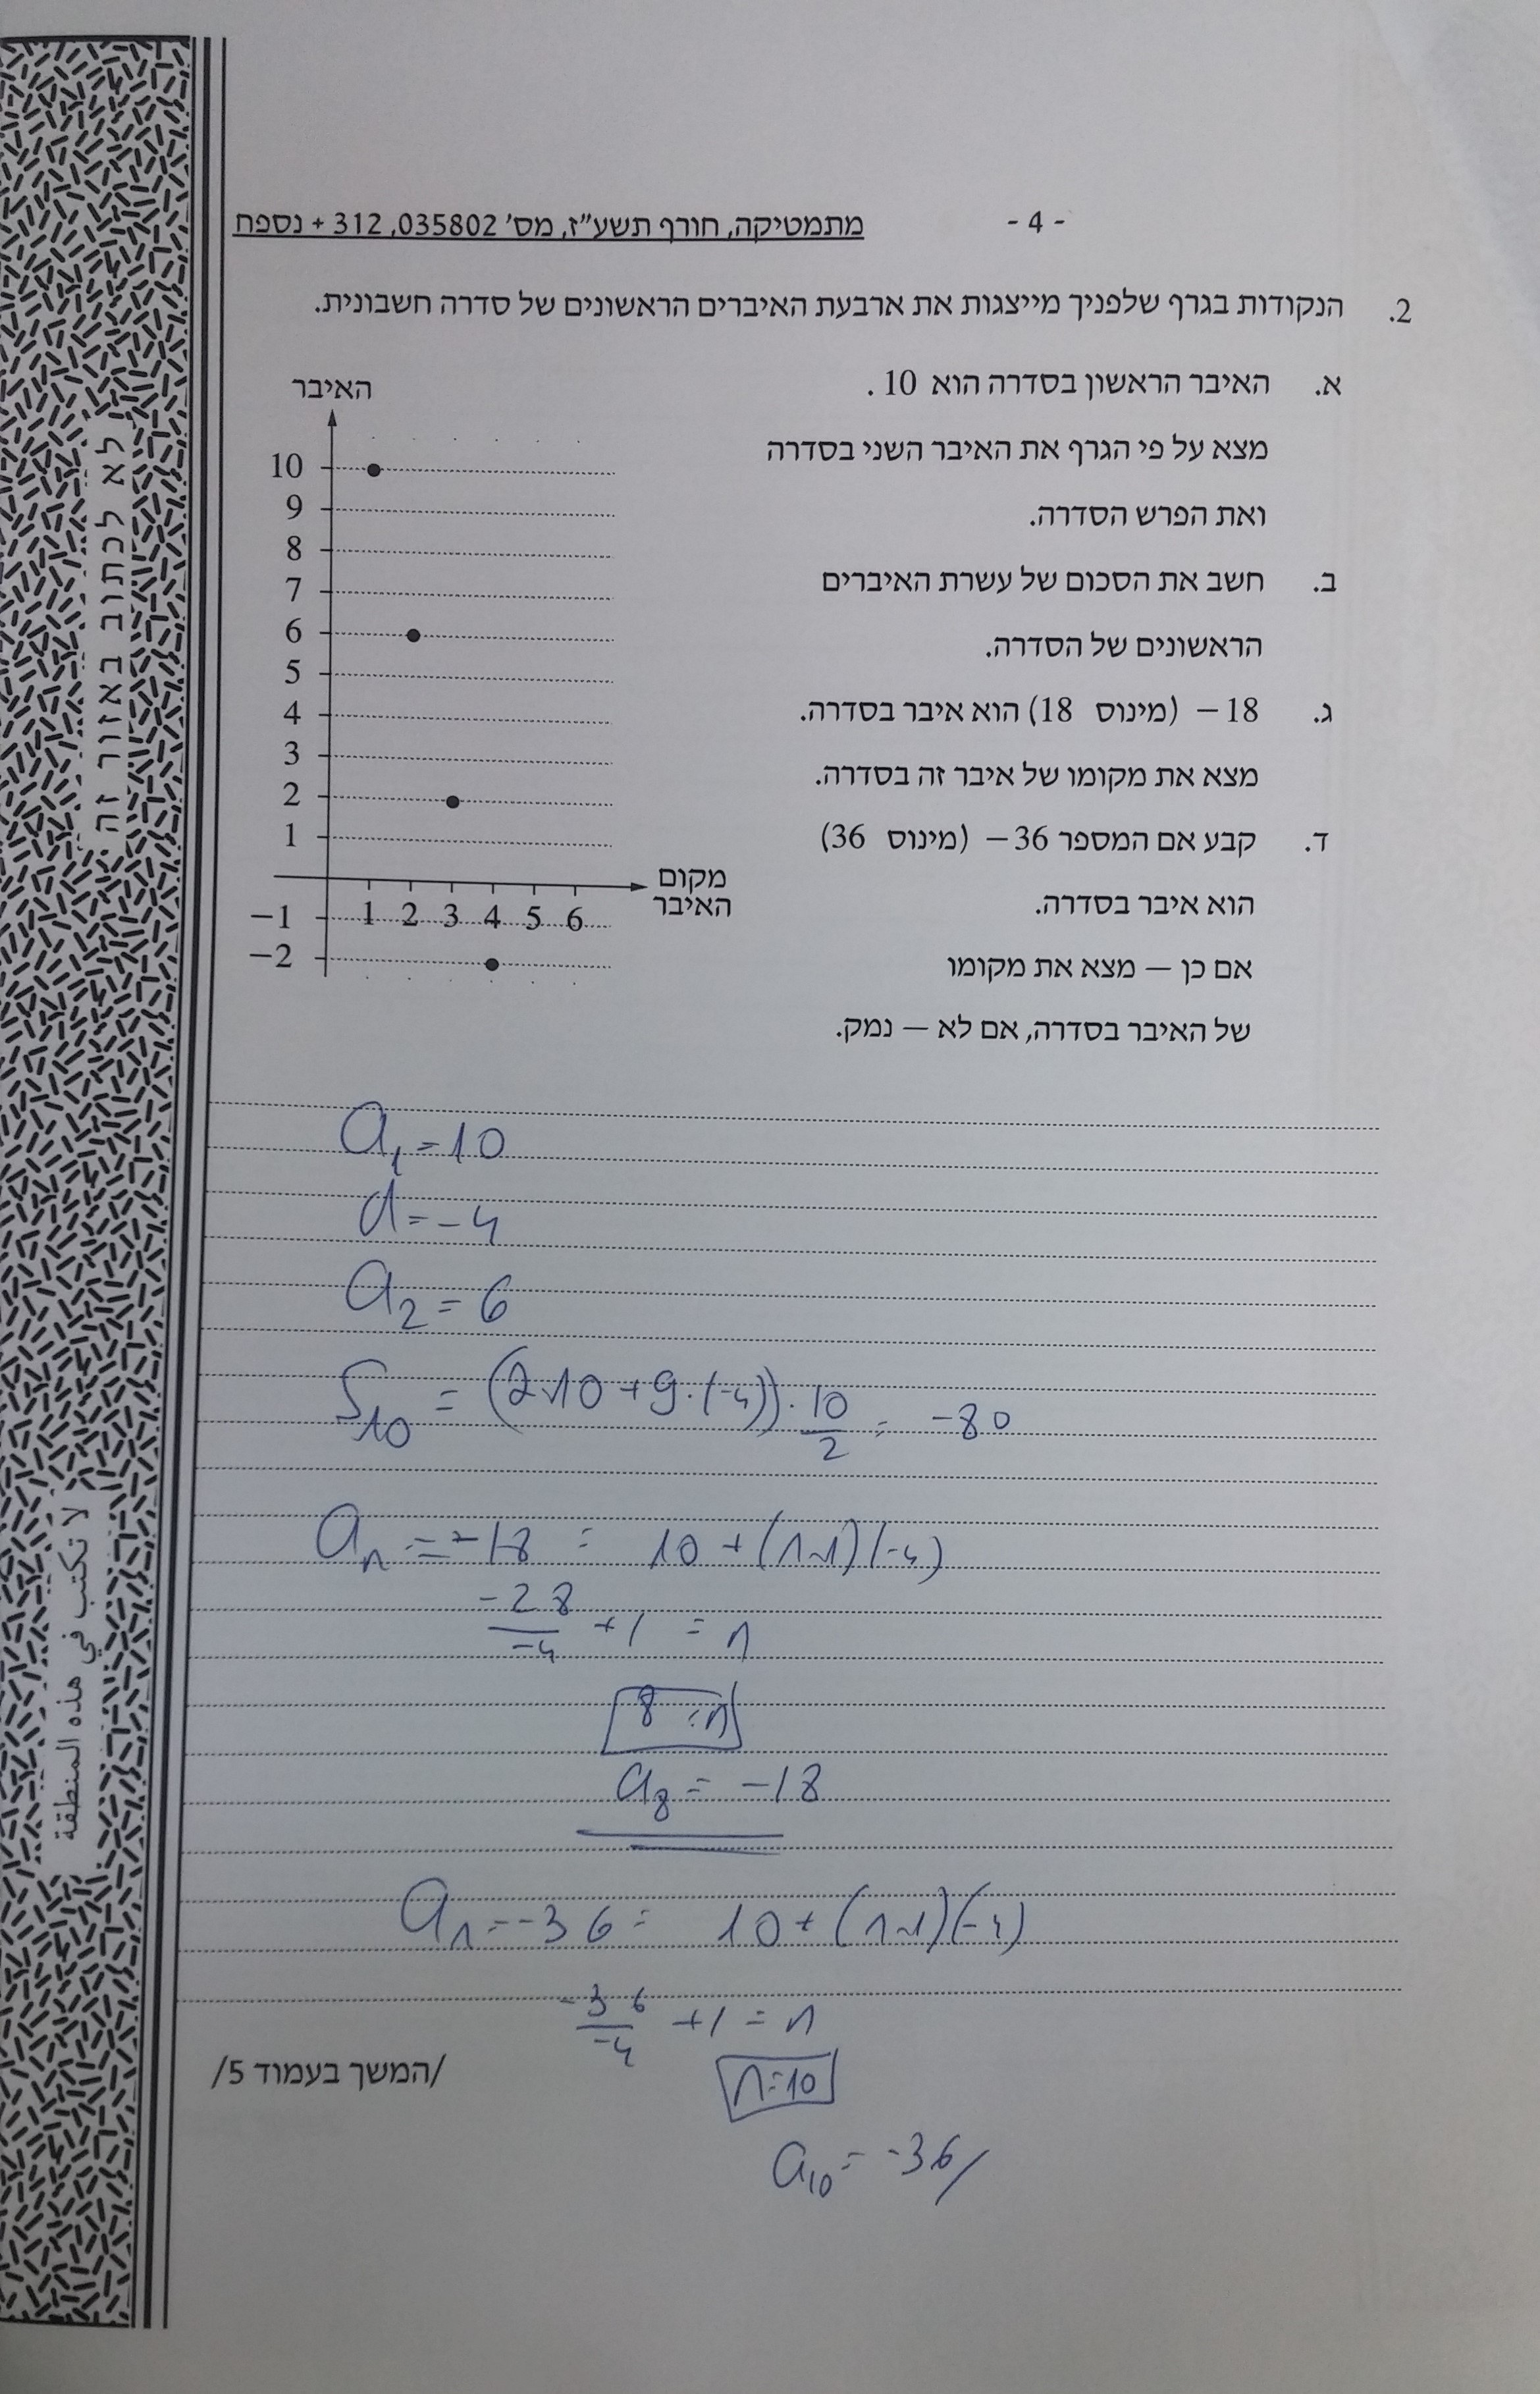 - 4 - מתמטיקה, חורף תשע"ז, מס' 035802, 312 + נספח
2. הנקודות בגרף שלפניך מייצגות את ארבעת האיברים הראשונים של סדרה חשבונית.
א. האיבר הראשון בסדרה הוא 10 .
מצא על פי הגרף את האיבר השני בסדרה
ואת הפרש הסדרה.
ב. חשב את הסכום של עשרת האיברים
הראשונים של הסדרה.
ג. 18 – (מינוס 18) הוא איבר בסדרה.
מצא את מקומו של איבר זה בסדרה.
ד. קבע אם המספר 36 – (מינוס 36)
הוא איבר בסדרה.
אם כן — מצא את מקומו
של האיבר בסדרה, אם לא — נמק.
האיבר
10
9
8
7
6
5
4
3
2
1
מקום
האיבר
−1 1 2 3 4 5 6
−2
a₁ = 10
d = -4
a₂ = 6
S₁₀ = (2·10 + 9·(-4))·10/2 = -80
aₙ = -18 = 10 + (n-1)(-4)
-28/-4 + 1 = n
8 = n
a₈ = -18
aₙ = -36 = 10 + (n-1)(-4)
-36/-4 + 1 = n
n = 10
a₁₀ = -36
/המשך בעמוד 5/
לא לכתוב באזור זה
لا تكتب في هذه المنطقة